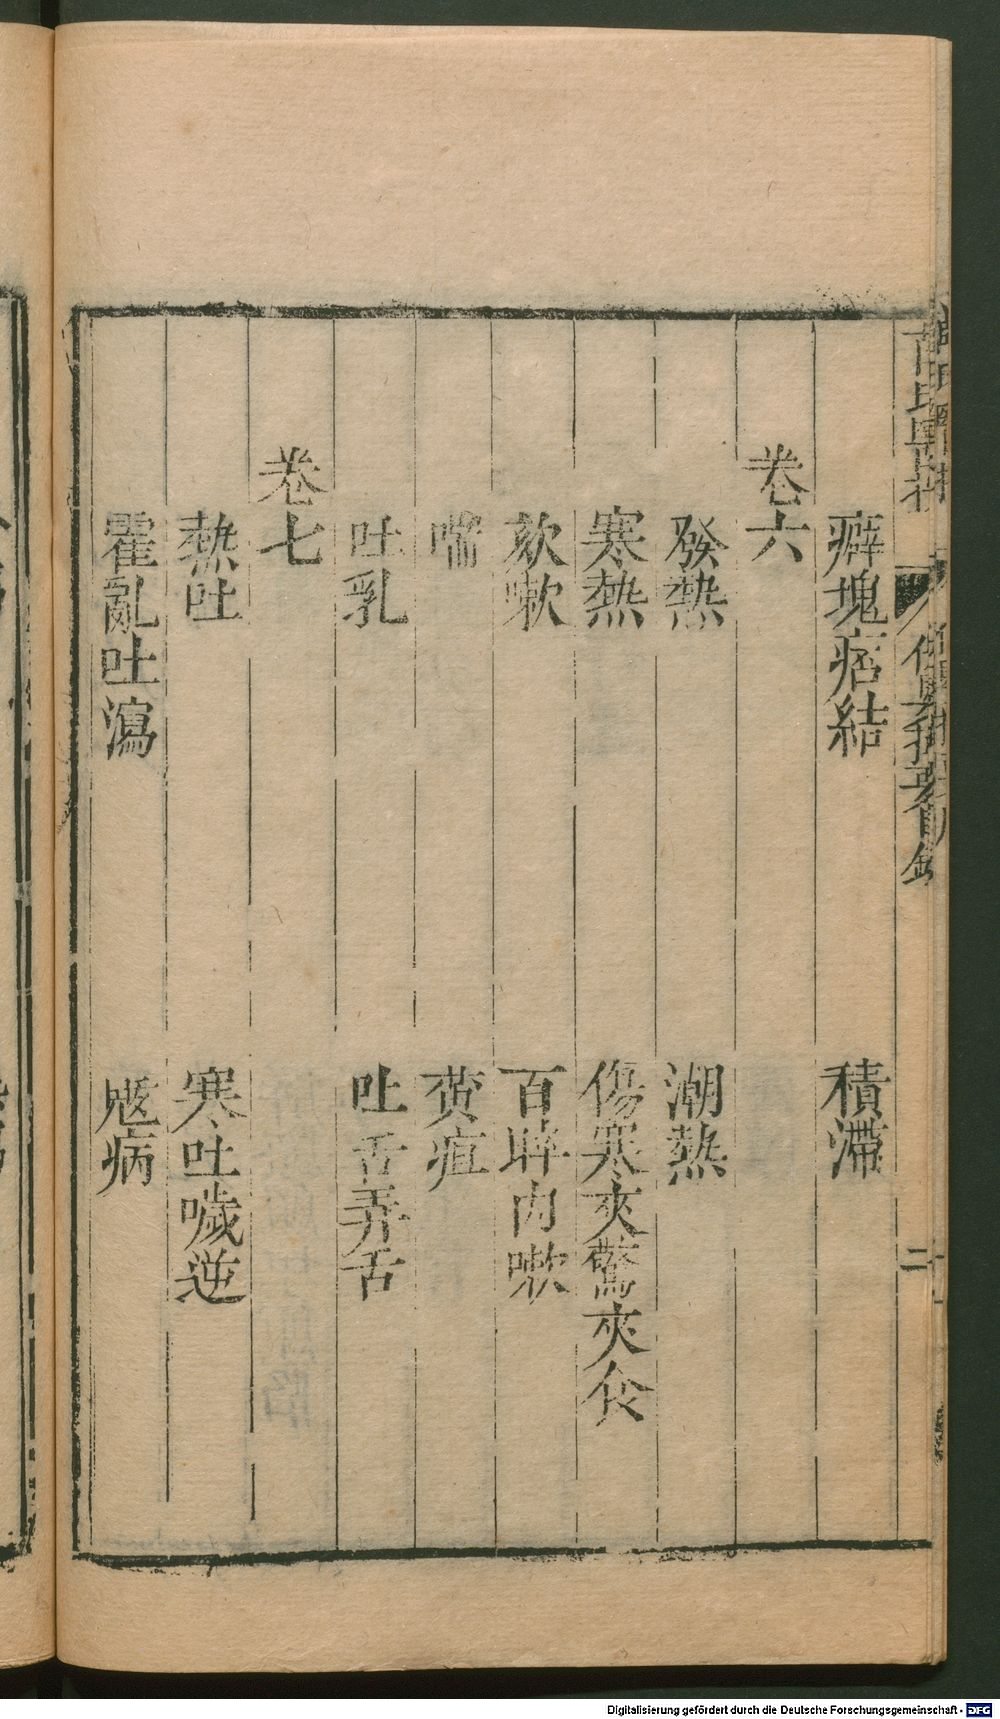 癖塊痞結　積滯
卷六
發熱　潮熱
寒熱　傷寒夾驚夾食
欬嗽　百晬內嗽
喘　黄疸
吐乳　吐舌弄舌
卷七
熱吐　寒吐噦逆
霍亂吐瀉　尪病
保嬰撮要目錄
二
Digitalisierung gefördert durch die Deutsche Forschungsgemeinschaft - DFG